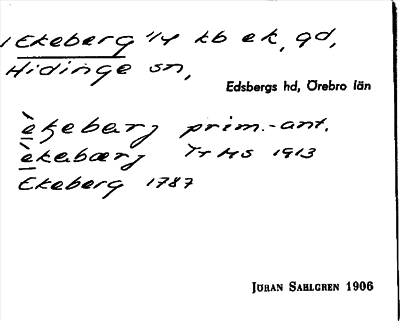 Ekeberg 1/4 kb ek, gd,
Hidinge sn,
Edsbergs hd, Örebro län
èkebærj prim.-ant.
èkabærj TrHS 1913
Ekeberg 1787
JÖRAN SAHLGREN 1906